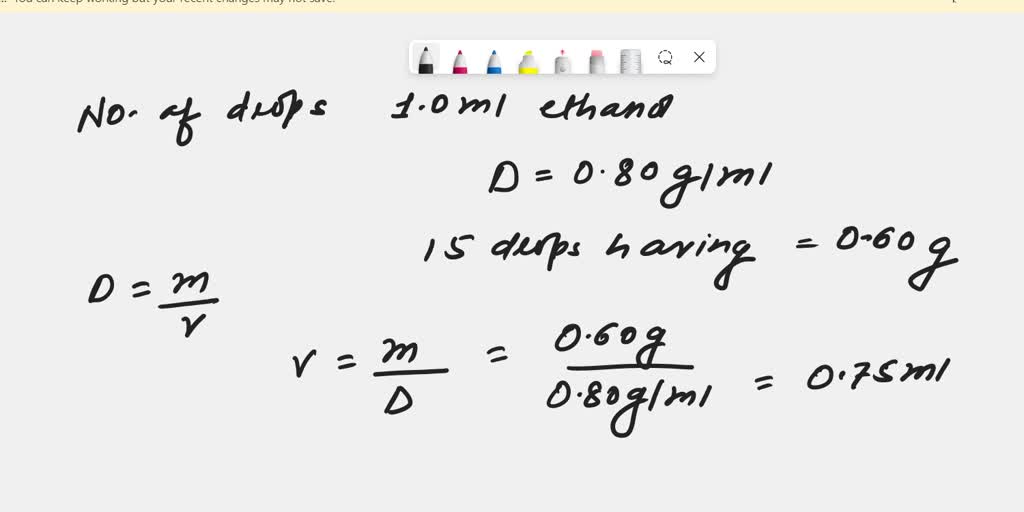 You can keep working but your recent changes may not save.
No. of drops 1.0 ml ethanol
D = 0.80 g/ml
15 drops having = 0.60 g
D = m/v
v = m/D = 0.60g/0.80g/ml = 0.75 ml